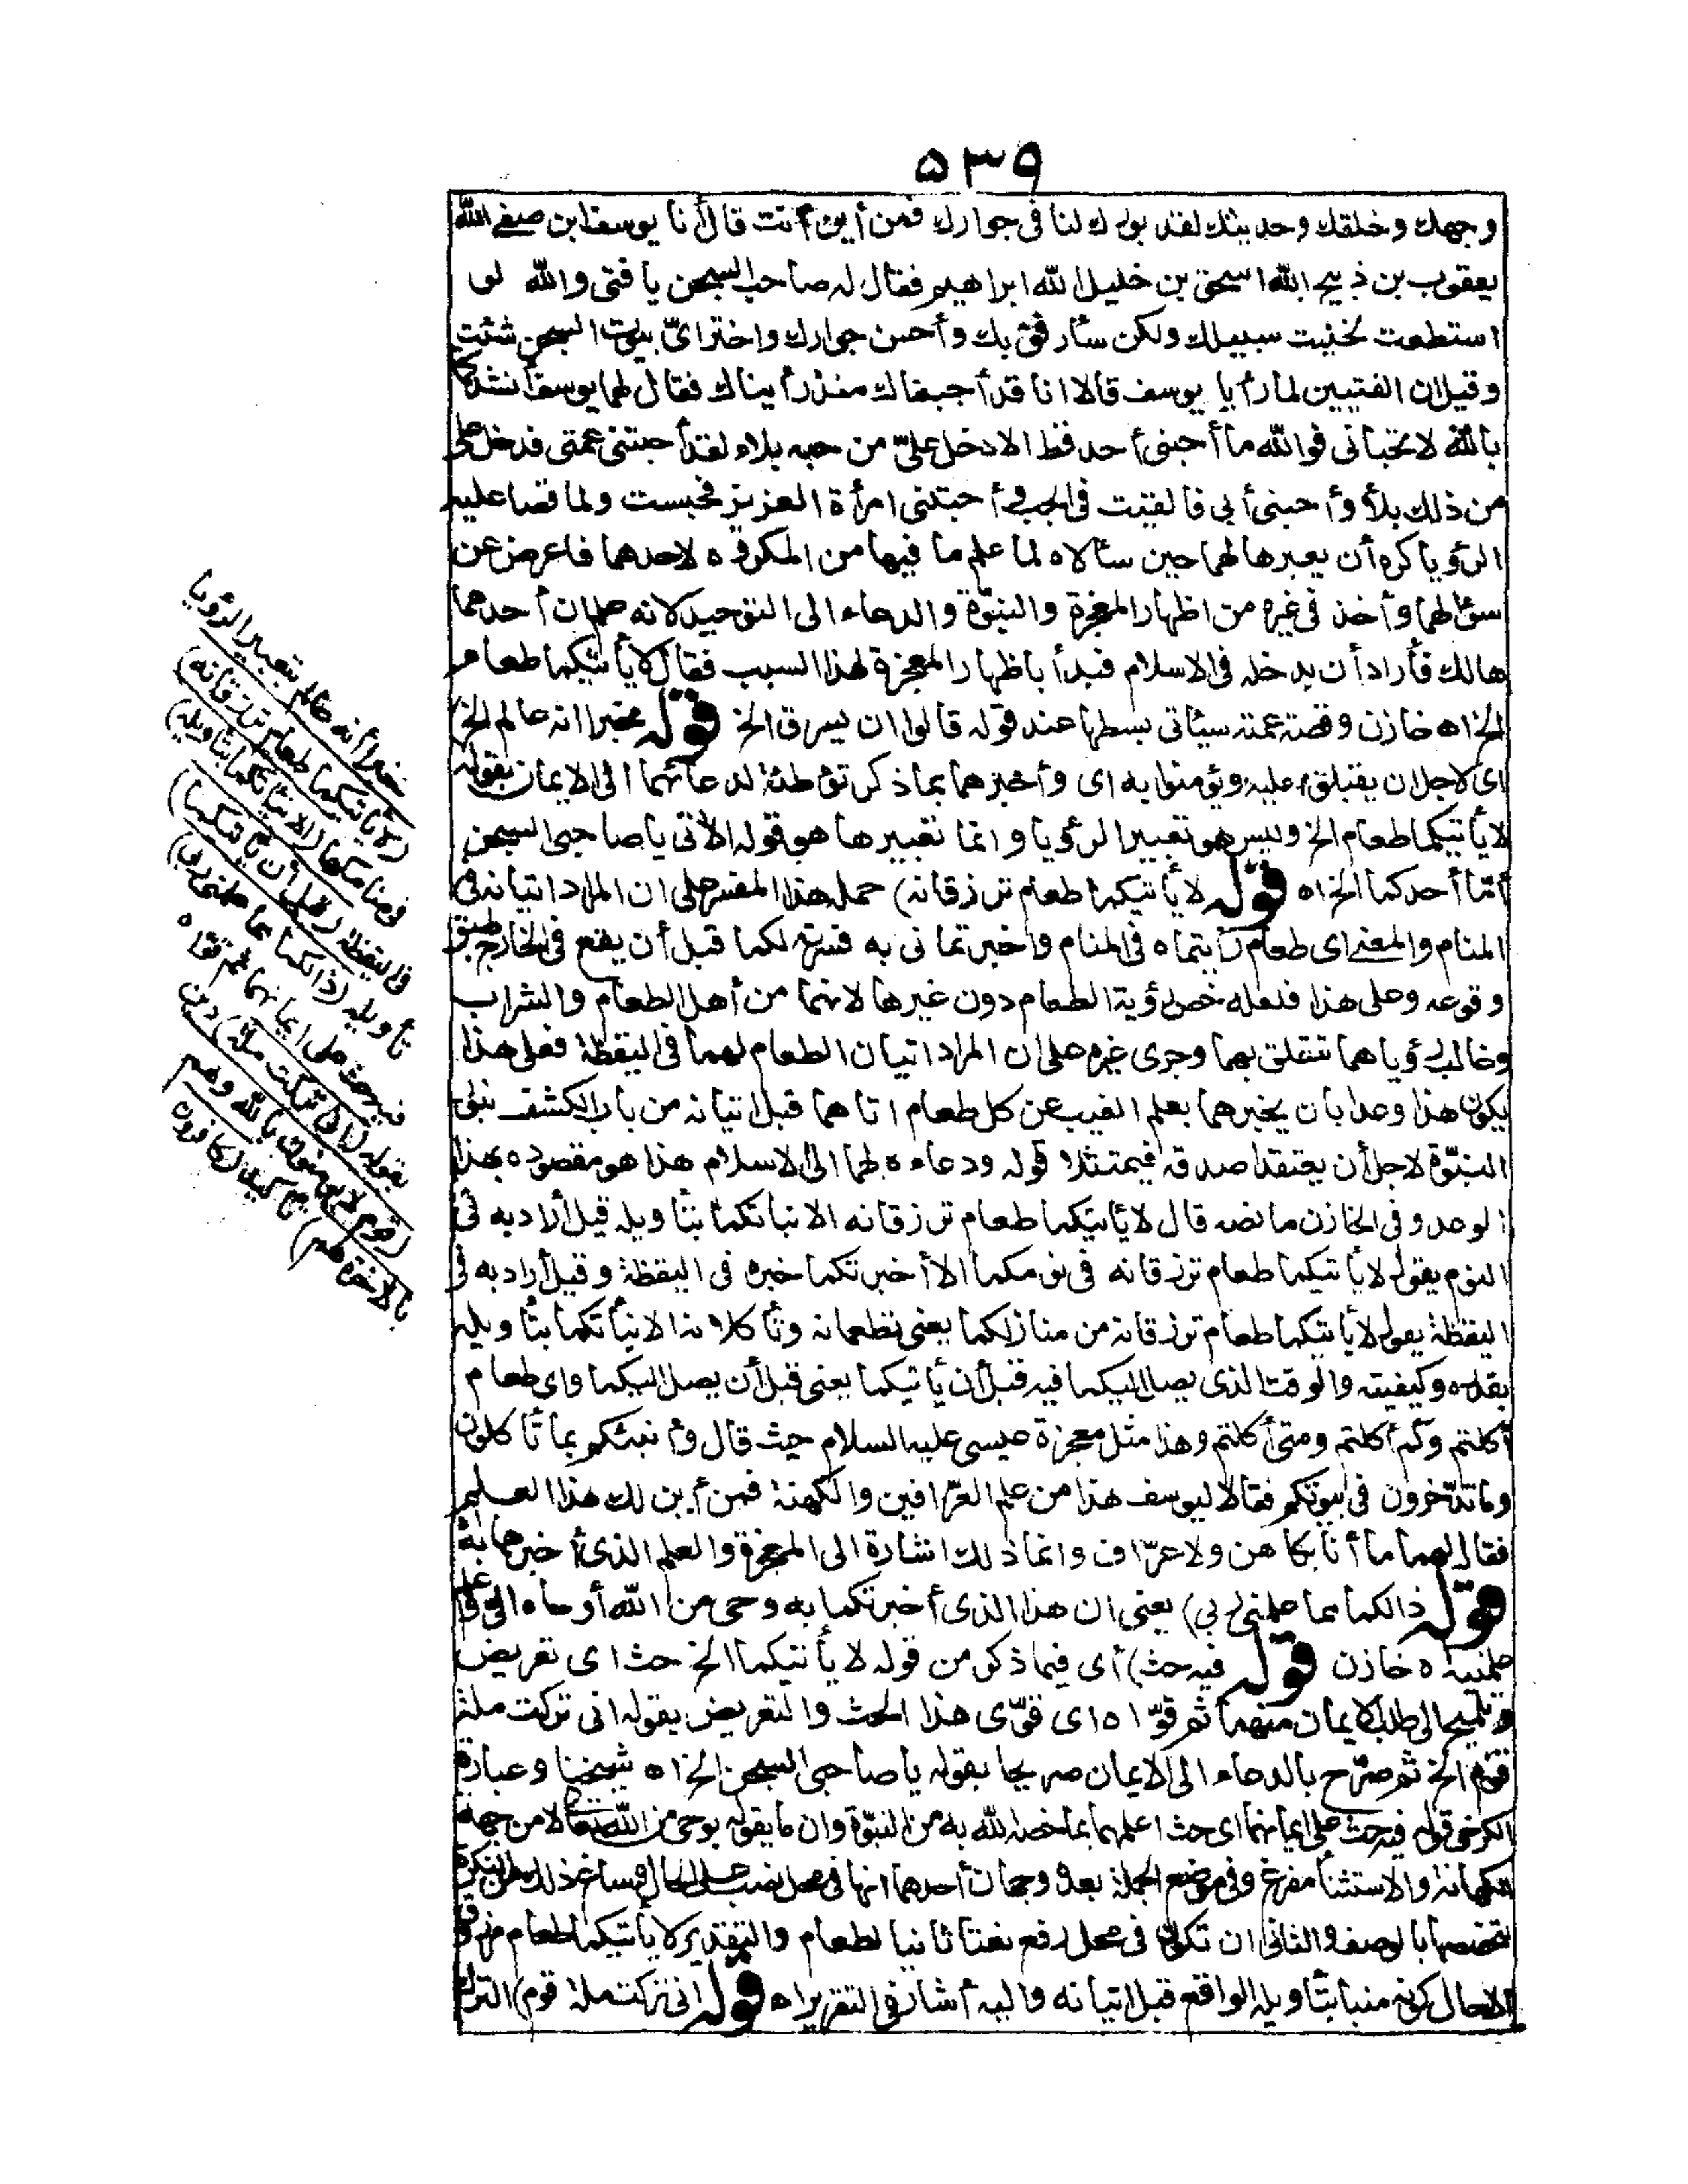 ٥٣٩
وجهك وخلقك وحديثك لقد بورك لنا فى جوارك فمن أين أنت قال أنا يوسف ابن صفى الله
يعقوب بن ذبيح الله اسحق بن خليل الله ابراهيم فقال له صاحب السجن يا فتى والله لو
استطعت لخليت سبيلك ولكن سأرفق بك وأحسن جوارك واختر اىّ بيوت السجن شئت
وقيل ان الفتيين لما رأيا يوسف قالا انا قد أحببناك منذ رأيناك فقال لهما يوسف أنشدكما
بالله لا تحبانى فوالله ما أحبنى أحد قط الا دخل علىّ من حبه بلاء لقد أحبتنى عمتى فدخل على
من ذلك بلأ وأحبنى أبى فألقيت فى الجب وأحبتنى امرأة العزيز فحبست ولما قصا عليه
الرؤيا كره أن يعبرها لهما حين سألاه لما علم ما فيها من المكروه لاحدهما فاعرض عن
سؤالهما وأخذ فى غيره من اظهار المعجزة والنبوّة والدعاء الى التوحيد لانه علم ان أحدهما
هالك فأراد أن يدخله فى الاسلام فبدأ باظهار المعجزة لهذا السبب فقال لا يأتيكما طعام
الخ اه خازن وقصة عمته سيئاتى بسطها عند قوله قالوا ان يسرق الخ قوله مخبرا انه عالم الخ)
اى لاجل ان يقبلوا عليه ويؤمنوا به اى وأخبرهما بما ذكر توطئة لدعائهما الى الايمان بقوله
لا يأتيكما طعام الخ وليس هو تعبير الرؤيا وانما تعبيرها هو قوله الآتى يا صاحبى السجن
أمّا أحدكما الخ اه قوله لا يأتيكما طعام ترزقانه) حمل هذا المفسر على ان المراد اتيانه فى
المنام والمعنى اى طعام رأيتماه فى المنام واخبرتمانى به فسرته لكما قبل أن يقع فى الخارج طبق
وقوعه وعلى هذا فلعله خص رؤية الطعام دون غيرها لانهما من أهل الطعام والشراب
وغالب رؤياهما تتعلق بهما وجرى غيره على ان المراد اتيان الطعام لهما فى اليقظة فعلى هذا
يكون هذا وعدا بان يخبرهما بعلم الغيب عن كل طعام اتاهما قبل اتيانه من باب الكشف بنور
النبوّة لاجل أن يعتقدا صدقه فيمتثلا قوله ودعاءه لهما الى الاسلام هذا هو مقصوده بهذا
الوعد وفى الخازن ما نصه قال لا يأتيكما طعام ترزقانه الا نبأتكما بتأويله قيل أراد به فى
النوم يقول لا يأتيكما طعام ترزقانه فى نومكما الا أخبرتكما خبره فى اليقظة وقيل أراد به فى
اليقظة يقول لا يأتيكما طعام ترزقانه من منازلكما يعنى تطعمانه وتأكلانه الا نبأتكما بتأويله
بقدره وكيفيته والوقت الذى يصل اليكما فيه قبل أن يأتيكما يعنى قبل أن يصل اليكما واى طعام
أكلتم وكم أكلتم ومتى أكلتم وهذا مثل معجزة عيسى عليه السلام حيث قال وأنبئكم بما تأكلون
وما تدّخرون فى بيوتكم فقالا ليوسف هذا من علم العرّافين والكهنة فمن أين لك هذا العلم
فقال لهما ما أنا بكاهن ولا عرّاف وانما ذلك اشارة الى المعجزة والعلم الذى أخبرهما به
قوله ذالكما مما علمنى ربى) يعنى ان هذا الذى أخبرتكما به وحى من الله أوحاه الىّ وعلم
علمنيه اه خازن قوله فيه حث) أى فيما ذكر من قوله لا يأتيكما الخ حث اى تعريض
وتلميح الى طلب الايمان منهما ثم قوّاه اى قوّى هذا الحث والتعريض بقوله انى تركت ملة
قوم الخ ثم صرّح بالدعاء الى الايمان صريحا بقوله يا صاحبى السجن الخ اه شيخنا وعبارة
الكرخى قوله فيه حث على ايمانهما اى حث اعلمهما بما خصه الله به من النبوّة وان ما يقوله بوحى من الله تعالى لا من جهة
الكهانة والاستثناء مفرغ وفى موضع الجملة بعده وجهان أحدهما انها فى محل نصب على الحال وساغ ذلك من النكرة
لتخصصها بالوصف والثانى ان تكون فى محل رفع نعتا ثانيا لطعام والتقدير لا يأتيكما طعام مرزوق
الا حال كونه منبأ بتأويله الواقع قبل اتيانه واليه أشار فى التقرير اه قوله انى تركت ملة قوم) الترك
مخبرا أنه عالم بتعبير الرؤيا
(لا يأتيكما طعام ترزقانه)
فى منامكما (الا نبأتكما بتأويله)
فى اليقظة (قبل أن يأتيكما)
تأويله (ذالكما مما علمنى ربى)
فيه حث على ايمانهما ثم قوّاه
بقوله (انى تركت ملة) دين
(قوم لا يؤمنون بالله وهم
بالاخرة هم) تاكيد (كافرون